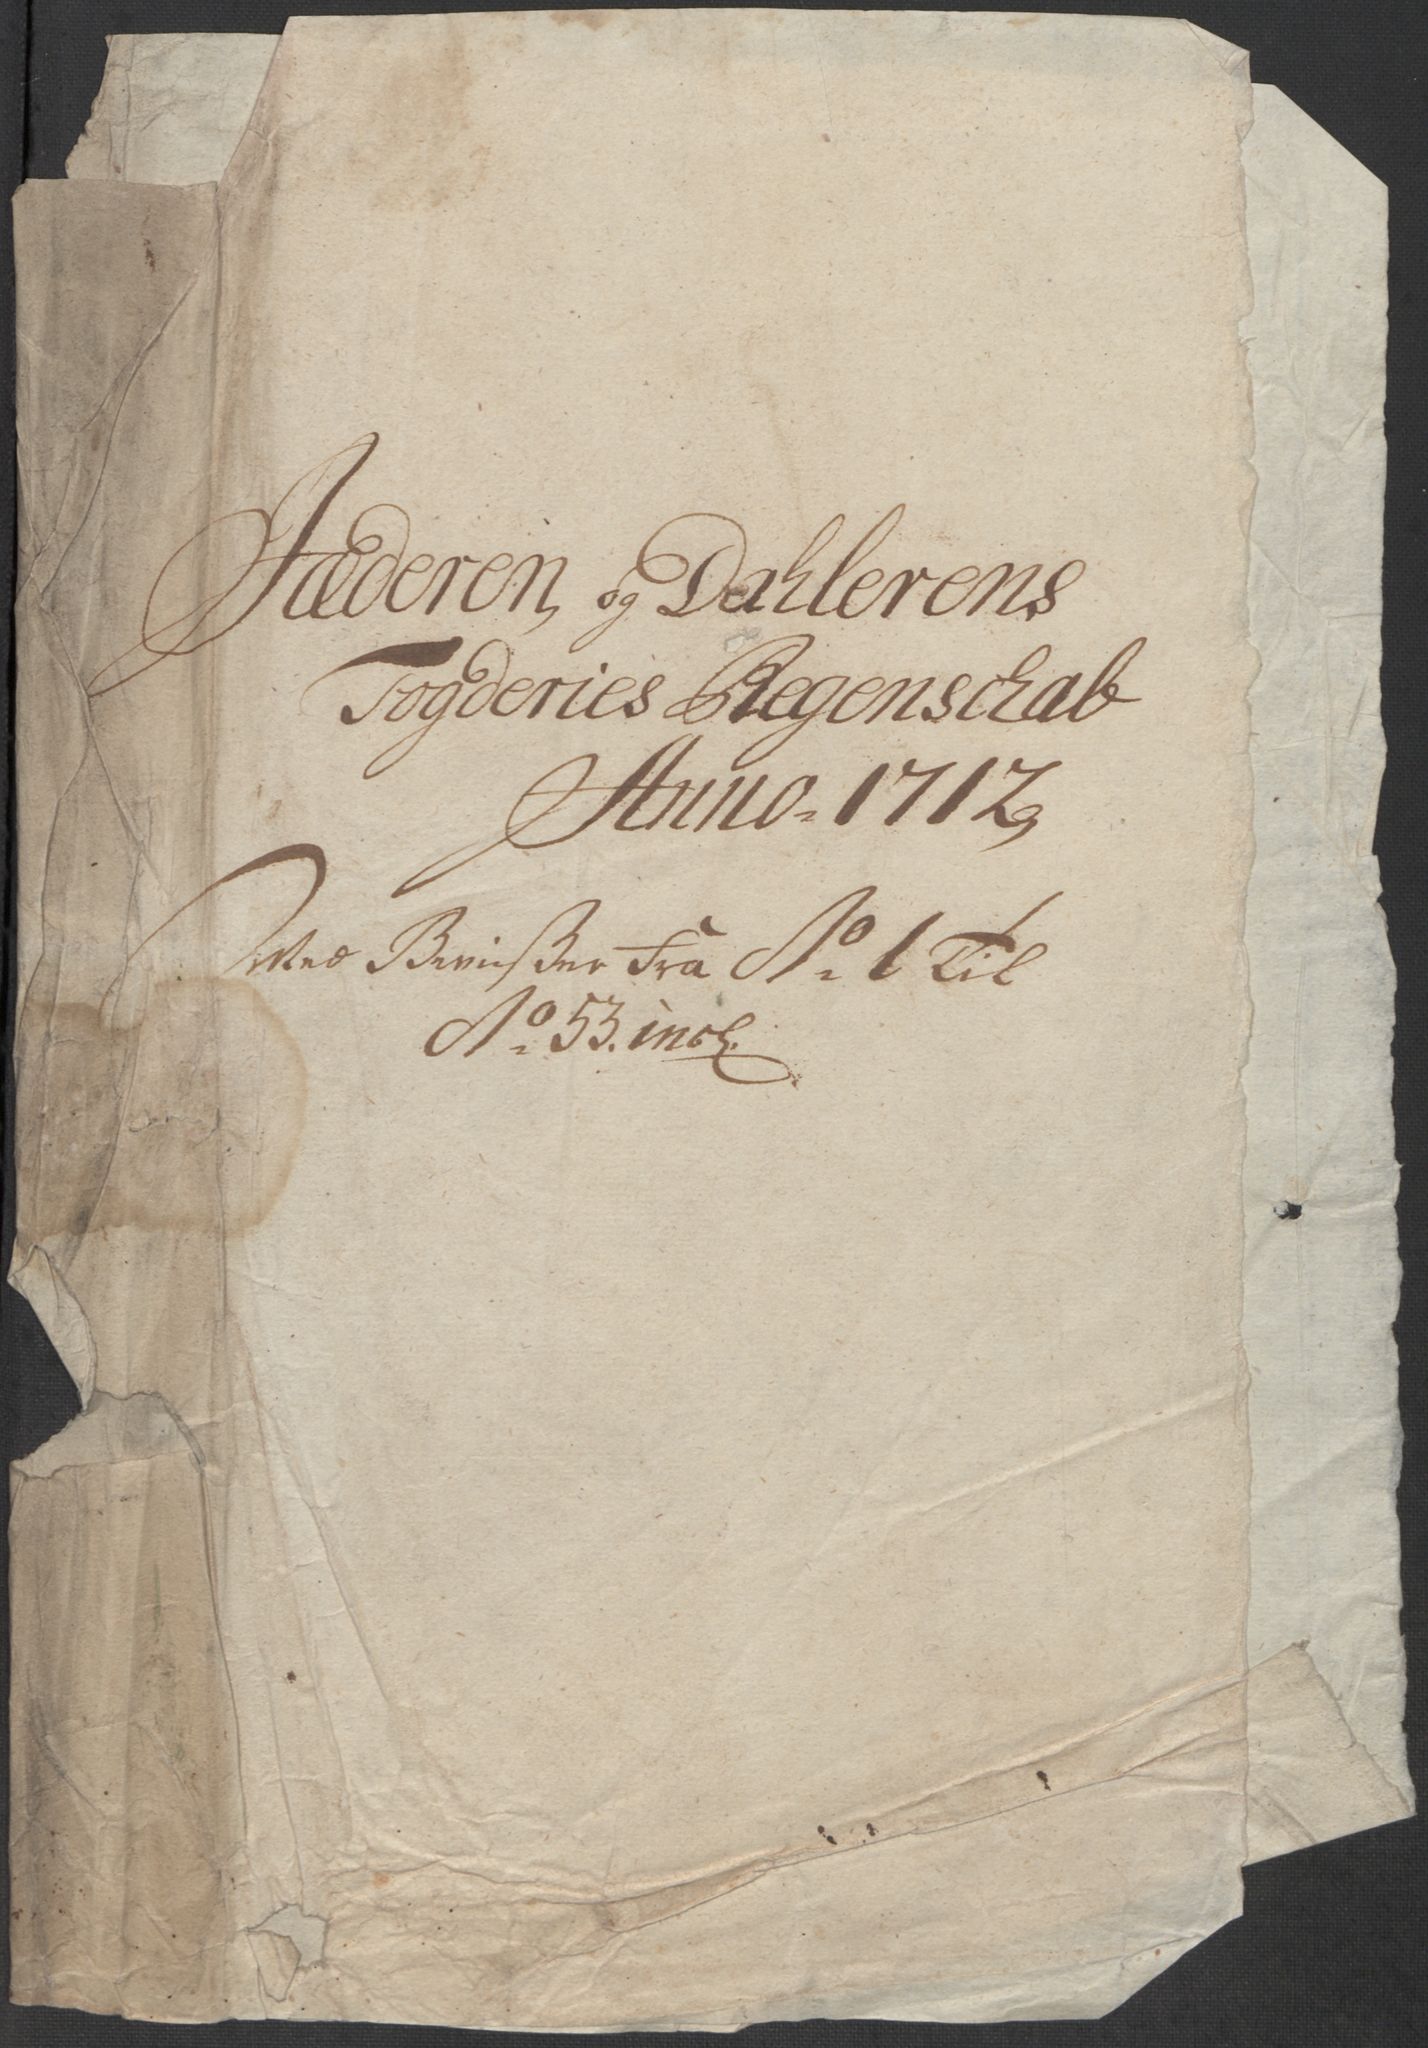 Jæderen, og Dahlerens
Fogderies Regenschab
Anno 1712,
Med Bevißer Fra No 1 Til
No 53. incl.